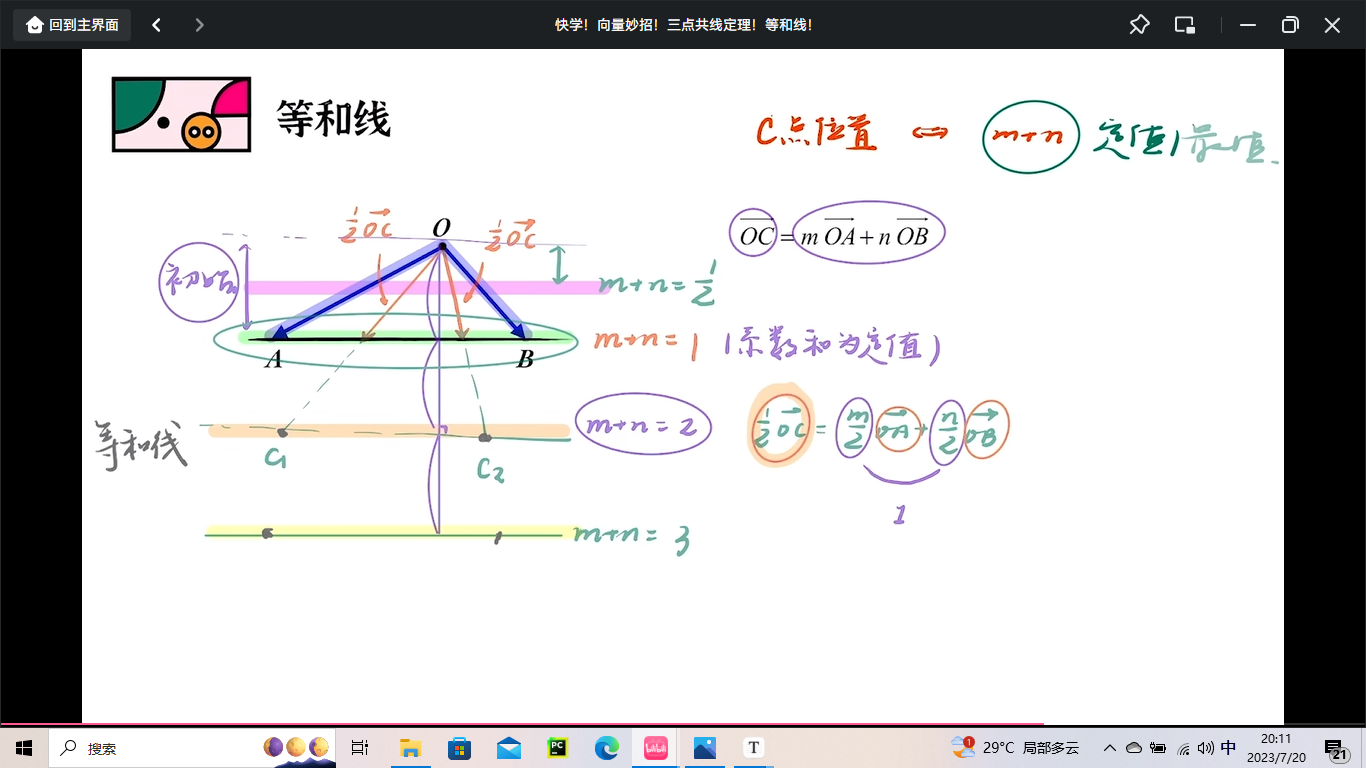 回到主界面
快学！向量妙招！三点共线定理！等和线！
等和线
C点位置 ⇔ m+n 定值/最值.
OC = m OA + n OB
1/2 OC
O
1/2 OC
初始
m+n = 1/2
A
B
m+n = 1 (系数和为定值)
等和线
C1
C2
m+n = 2
1/2 OC = m/2 OA + n/2 OB
1
m+n = 3
搜索
PC
bilibili
T
1
29°C 局部多云
中
20:11
2023/7/20
21